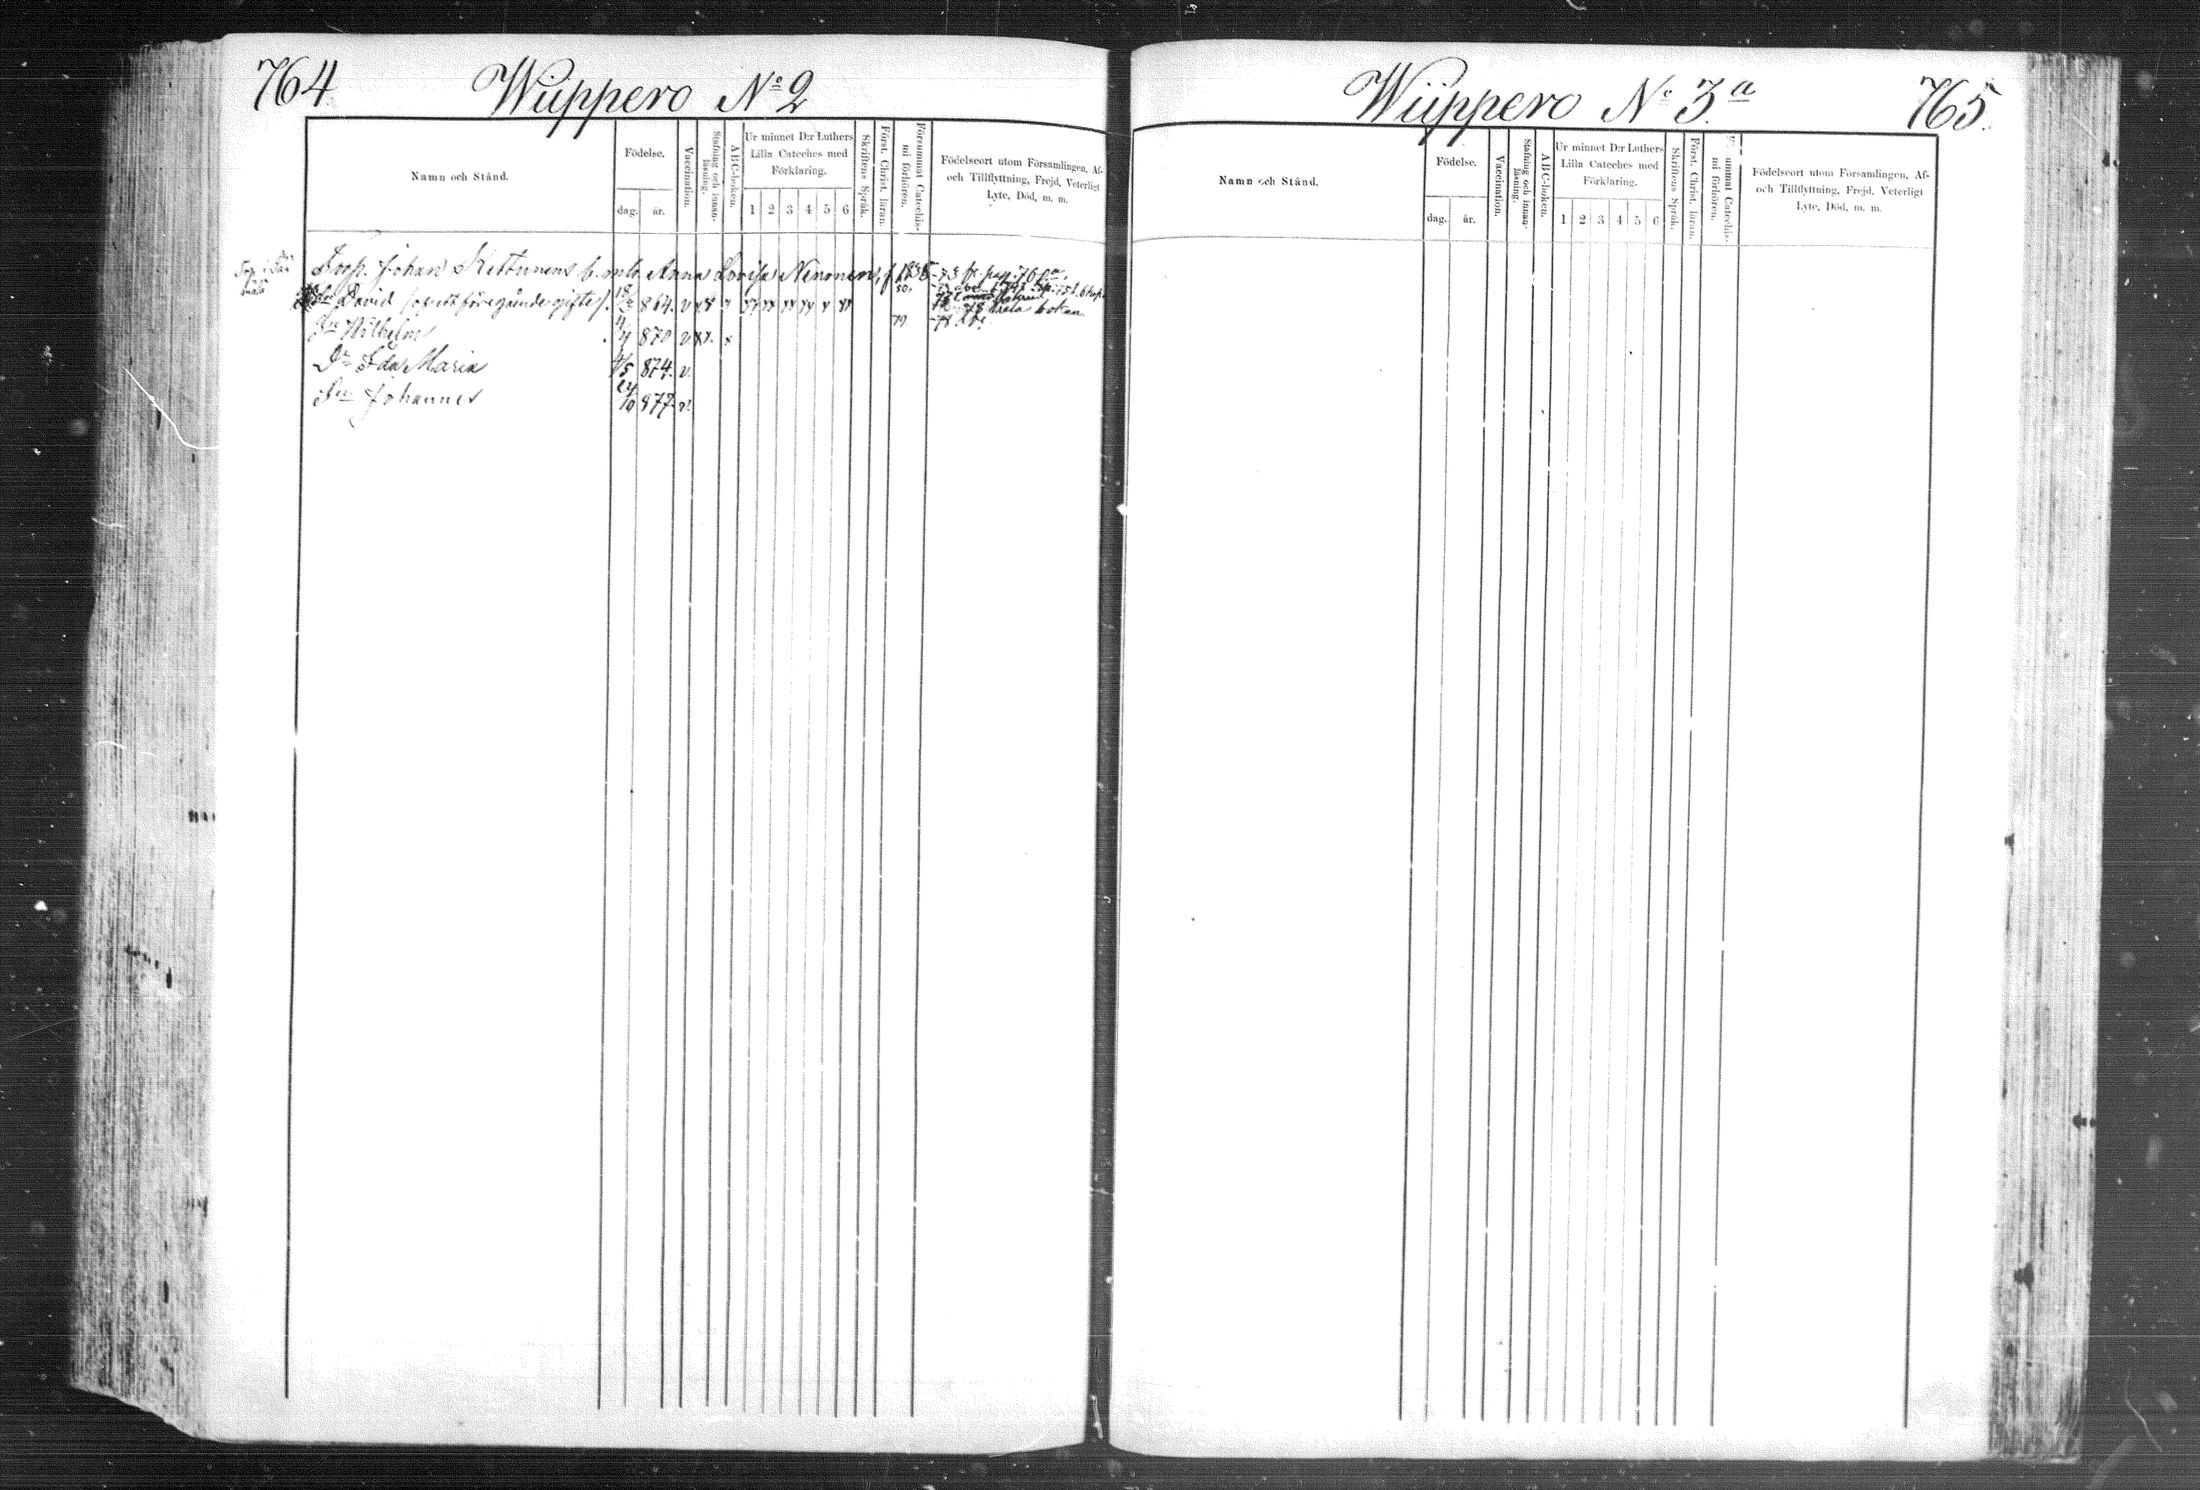 764 Wüppero No 2
Namn och Stånd.
Födelse.
dag. år.
Vaccination.
Stafning och innan-
läsning.
ABC-boken.
Ur minnet D:r Luthers
Lilla Cateches med
Förklaring.
1 2 3 4 5 6
Skriftens Språk.
Först. Christ. läran.
Försummat Catechis-
mi förhören.
Födelseort utom Församlingen, Af-
och Tillflyttning, Frejd, Veterligt
Lyte, Död, m. m.
Johan Kettunens Anna Lovisa Nenonen, f. 1838 -73 fr. pag. 760
David 864. v
Sn Wilhelm 870 v
Dr Ida Maria 4/5 874. v.
Sn Johannes 24/10 877. v.
Wüppero No 3.a 765.
Namn och Stånd.
Födelse.
dag. år.
Vaccination.
Stafning och innan-
läsning.
ABC-boken.
Ur minnet D:r Luthers
Lilla Cateches med
Förklaring.
1 2 3 4 5 6
Skriftens Språk.
Först. Christ. läran.
ummat Catechis-
mi förhören.
Födelseort utom Församlingen, Af-
och Tillflyttning, Frejd, Veterligt
Lyte, Död, m. m.